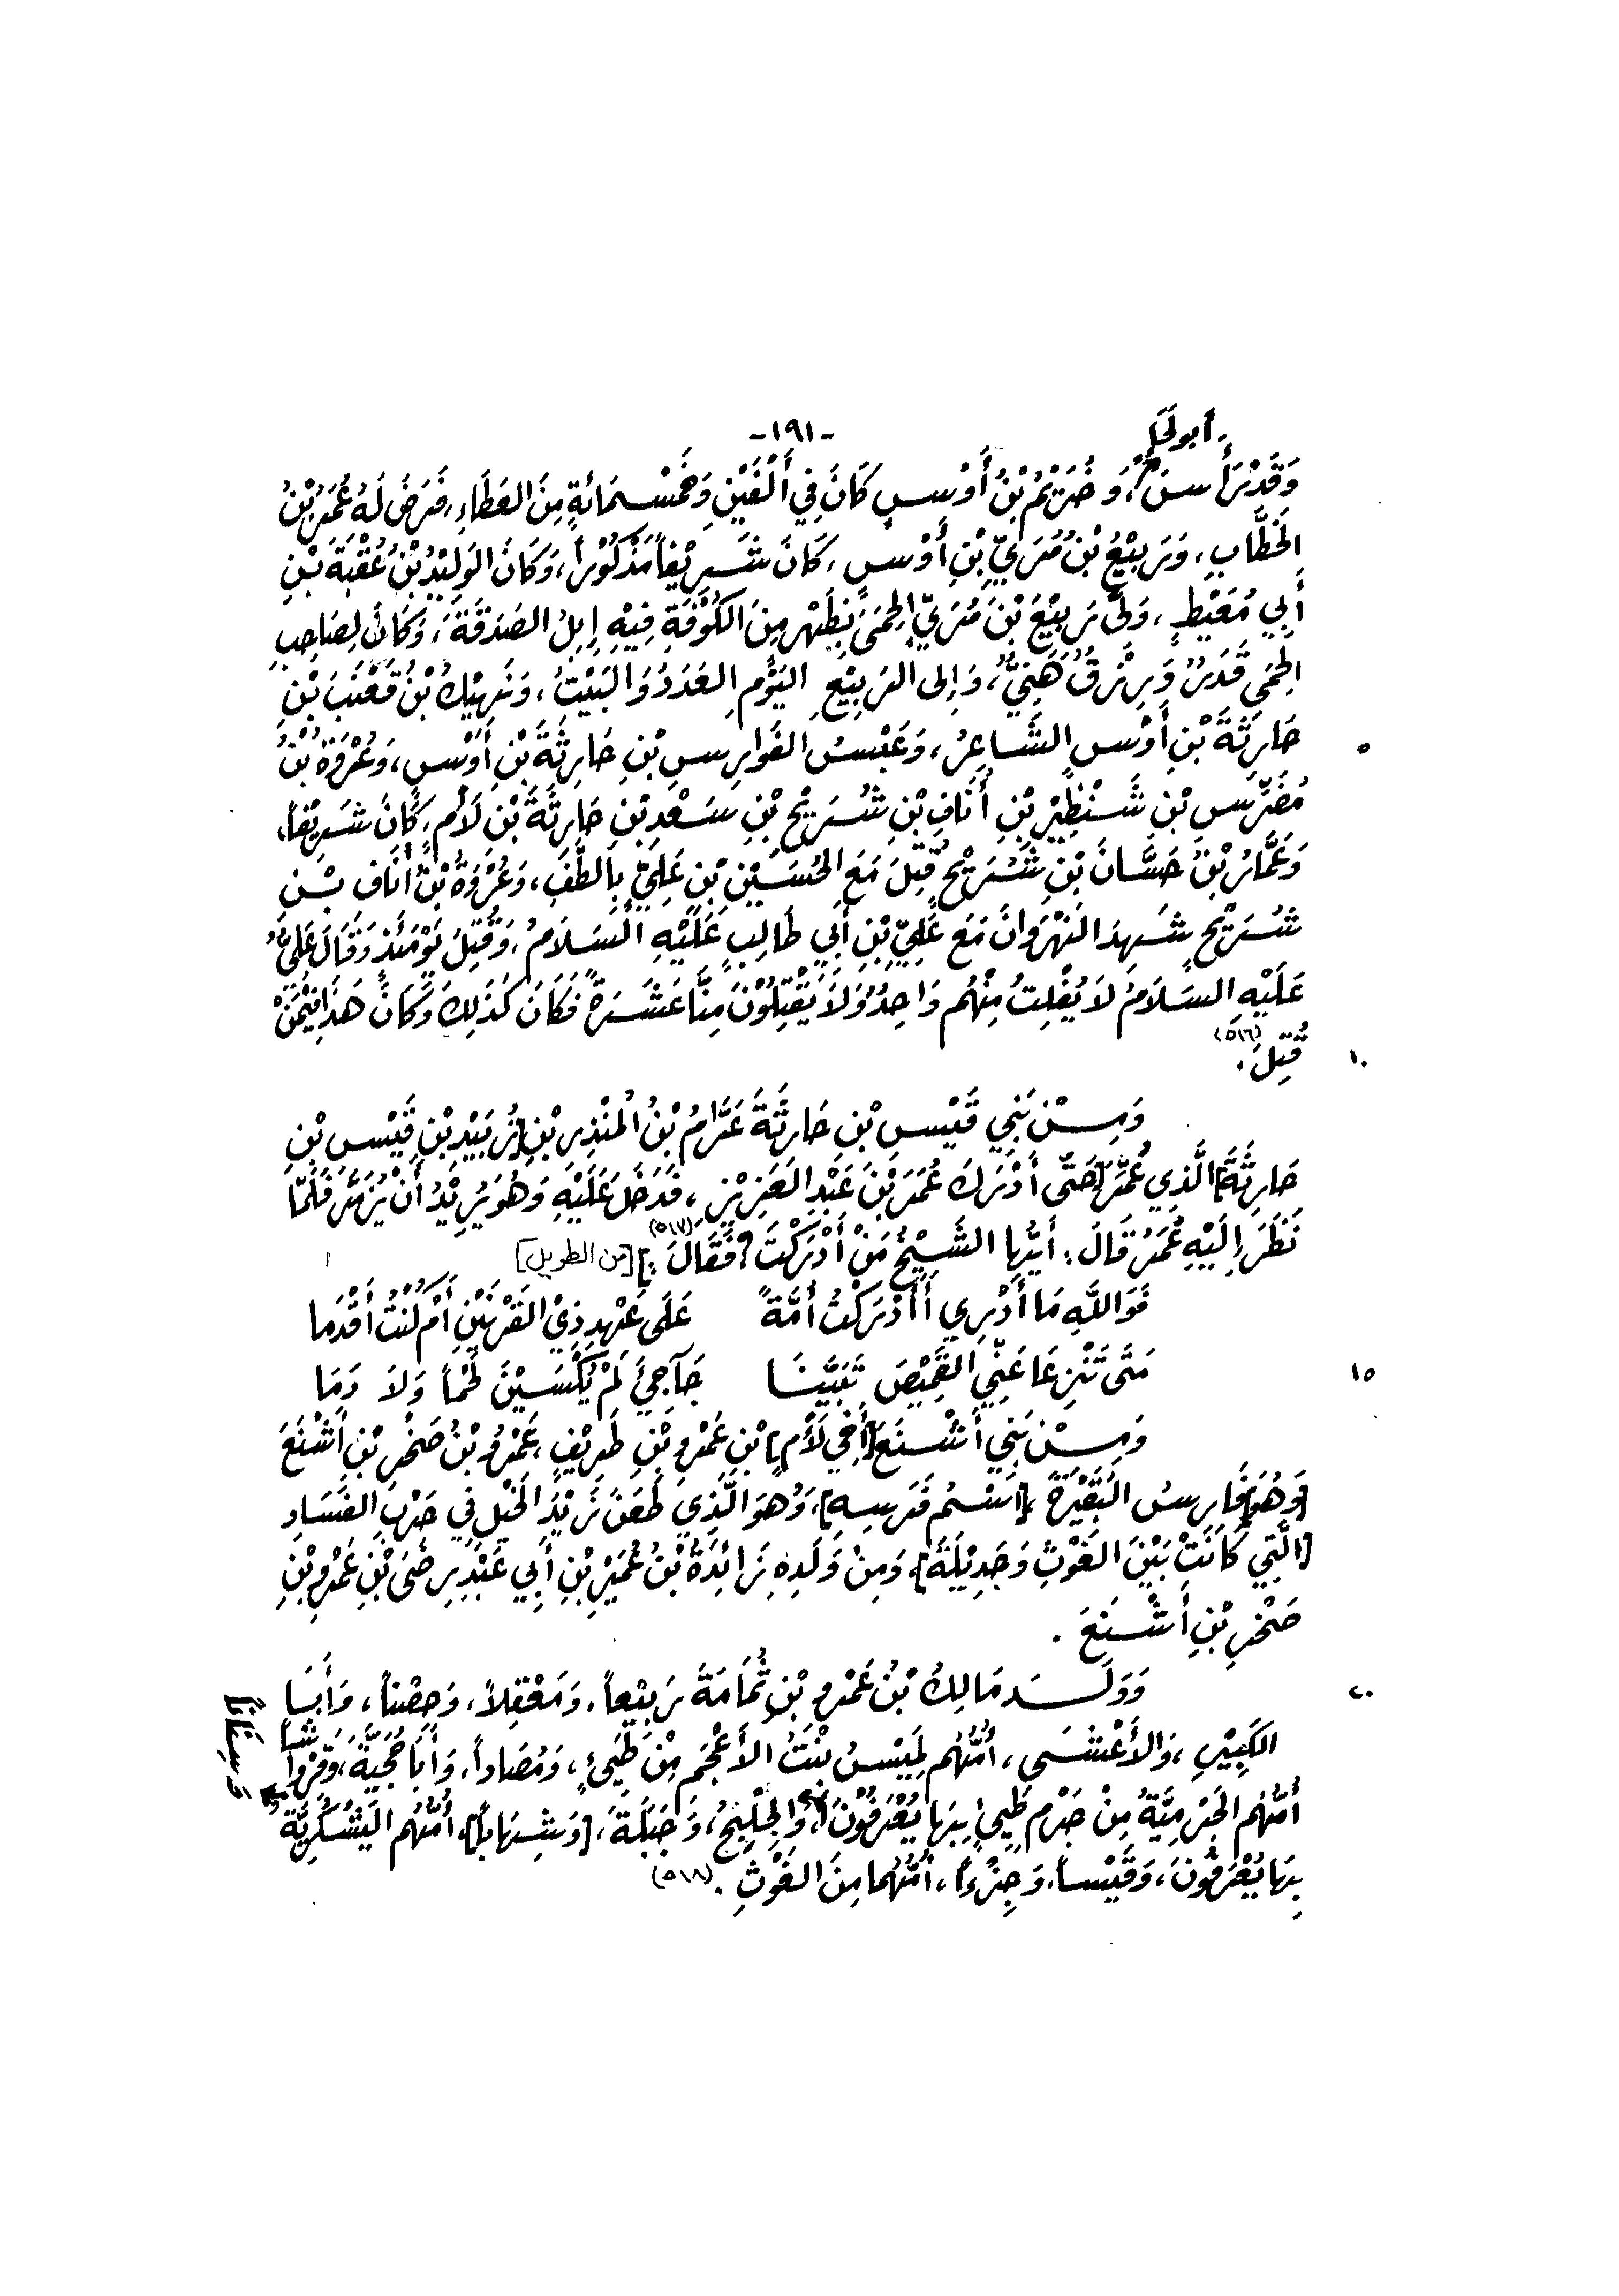 أبو لجأ
-١٩١-
وَقَدْ رَأَسَ، وَخُرَيْمُ بْنُ أَوْسٍ كَانَ فِي أَلْفَيْنِ وَخَمْسِمَائَةٍ مِنَ العَطَاءِ، فَرَضَ لَهُ عُمَرُ بْنُ
الخَطَّابِ، وَرَبِيْعُ بْنُ مُرَيِّ بْنِ أَوْسٍ، كَانَ شَرِيْفاً مَذْكُوْراً، وَكَانَ الوَلِيْدُ بْنُ عُقْبَةَ بْنِ
أَبِي مُعَيْطٍ، وَلَّى رَبِيْعَ بْنَ مُرَيٍّ الحِمَى بِظَهْرٍ مِنَ الكُوْفَةِ فِيْهِ إِبِلُ الصَدَقَةِ، وَكَانَ لِصَاحِبِ
الحِمَى قَدْرٌ وَرِزْقٌ هَنِيٌّ، وَإِلى الرَبِيْعِ اليَوْمِ العَدَدُ وَالبَيْتُ، وَنَهِيْكُ بْنُ قَعْنَبَ بْنِ
حَارِثَةَ بْنِ أَوْسٍ الشَاعِرُ، وَعَبْسُ الفَوَارِسِ بْنِ حَارِثَةَ بْنِ أَوْسٍ، وَعُرْوَةُ بْنُ
٥
مُضَرِّسِ بْنِ شَنْظِيْرِ بْنِ أُنَافِ بْنِ شُرَيْحِ بْنِ سَعْدِ بْنِ حَارِثَةَ بْنِ لَأْمٍ، كَانَ شَرِيْفاً،
وَعَمَّارُ بْنُ حَسَّانَ بْنِ شُرَيْحٍ قُتِلَ مَعَ الحُسَيْنِ بْنِ عَلِيٍّ بِالطَّفِّ، وَعُرْوَةُ بْنُ أُنَافِ بْنِ
شُرَيْحٍ شَهِدَ النَهْرَوَانَ مَعَ عَلِيِّ بْنِ أَبِي طَالِبٍ عَلَيْهِ السَلَامُ، وَقُتِلَ يَوْمَئِذٍ وَقَالَ عَلِيٌّ
عَلَيْهِ السَلَامُ لَا يُفْلِتُ مِنْهُم وَاحِدٌ وَلَا يَقْتِلُوْنَ مِنَّا عَشَرَةً فَكَانَ كَذَلِكَ وَكَانَ هَذَا فِيْمَنْ
قُتِلَ.(٥١٦)
١٠
وَمِنْ بَنِي قَيْسِ بْنِ حَارِثَةَ عَرَّامُ بْنُ المُنْذِرِ بْنِ [زُبَيْدِ بْنِ قَيْسِ بْنِ
حَارِثَةَ] الَّذِي عُمِّرَ [حَتَّى أَدْرَكَ عُمَرَ بْنَ عَبْدِ العَزِيْزِ، فَدَخَلَ عَلَيْهِ وَهُوَ يُرِيْدُ أَنْ يُزَمَّرَ فَلَمَّا
نَظَرَ إِلَيْهِ عُمَرُ قَالَ: أَيُّهَا الشَيْخُ مَنْ أَدْرَكْتَ؟ فَقَالَ:](٥١٧) [من الطويل]
فَوَاللَّهِ مَا أَدْرِي أَأَدْرَكْتُ أُمَّةً عَلَى عَهْدِ ذِيْ القَرْنَيْنِ أَمْ كُنْتُ أَقْدَمَا
مَتَى تَنْزِعَا عَنِّي القَمِيْصَ تَبَيَّنَا جَآجِيَ لَمْ يُكْسَيْنَ لَحْماً وَلَا دَمَا
١٥
وَمِنْ بَنِي أَشْنَعَ [أَخِي لَأْمِ] بْنِ عَمْرِو بْنِ طَرِيْفٍ، عَمْرُو بْنُ صَخْرِ بْنِ أَشْنَعَ
[وَهُوَ] فَارِسُ البَقِيْرَةِ، [اسْمُ فَرَسِهِ]، وَهُوَ الَّذِي طَعَنَ زَيْدَ الخَيْلِ فِي حَرْبِ الفَسَادِ
[الَّتِي كَانَتْ بَيْنَ الغَوْثِ وَجَدِيْلَةَ]، وَمِنْ وَلَدِهِ زَائِدَةُ بْنُ عُمَيْرِ بْنِ أَبِي عَبْدِ رِضَى بْنِ عَمْرِو بْنِ
صَخْرِ بْنِ أَشْنَعَ.
وَوَلَدَ مَالِكُ بْنُ عَمْرِو بْنِ ثُمَامَةَ رَبِيْعاً، وَمَعْقِلاً، وَحِصْناً، وَأَبَا
٢٠
الكَبِيْرِ، وَالأَعْشَى، أُمُّهُم لَمِيْسُ بِنْتُ الأَعْجَمِ مِنْ طَيِّءٍ، وَمُصَاداً، وَأَبَا حُجَيَّةَ، وَقِرْوَاشاً
وَسِنَاناً
أُمُّهُم الجَرْمِيَّةُ مِنْ جَرْمِ طَيِّءٍ بِهَا يُعْرَفُوْنَ، وَالجُلِيْحُ، وَجَبَلَةَ، [وَشِهَاباً]، أُمُّهُم اليَشْكُرِيَّةُ
بِهَا يُعْرَفُونَ، وَقَيْساً، وَجِزْءاً، أُمُّهُمَا مِنَ الغَوْثِ.(٥١٨)